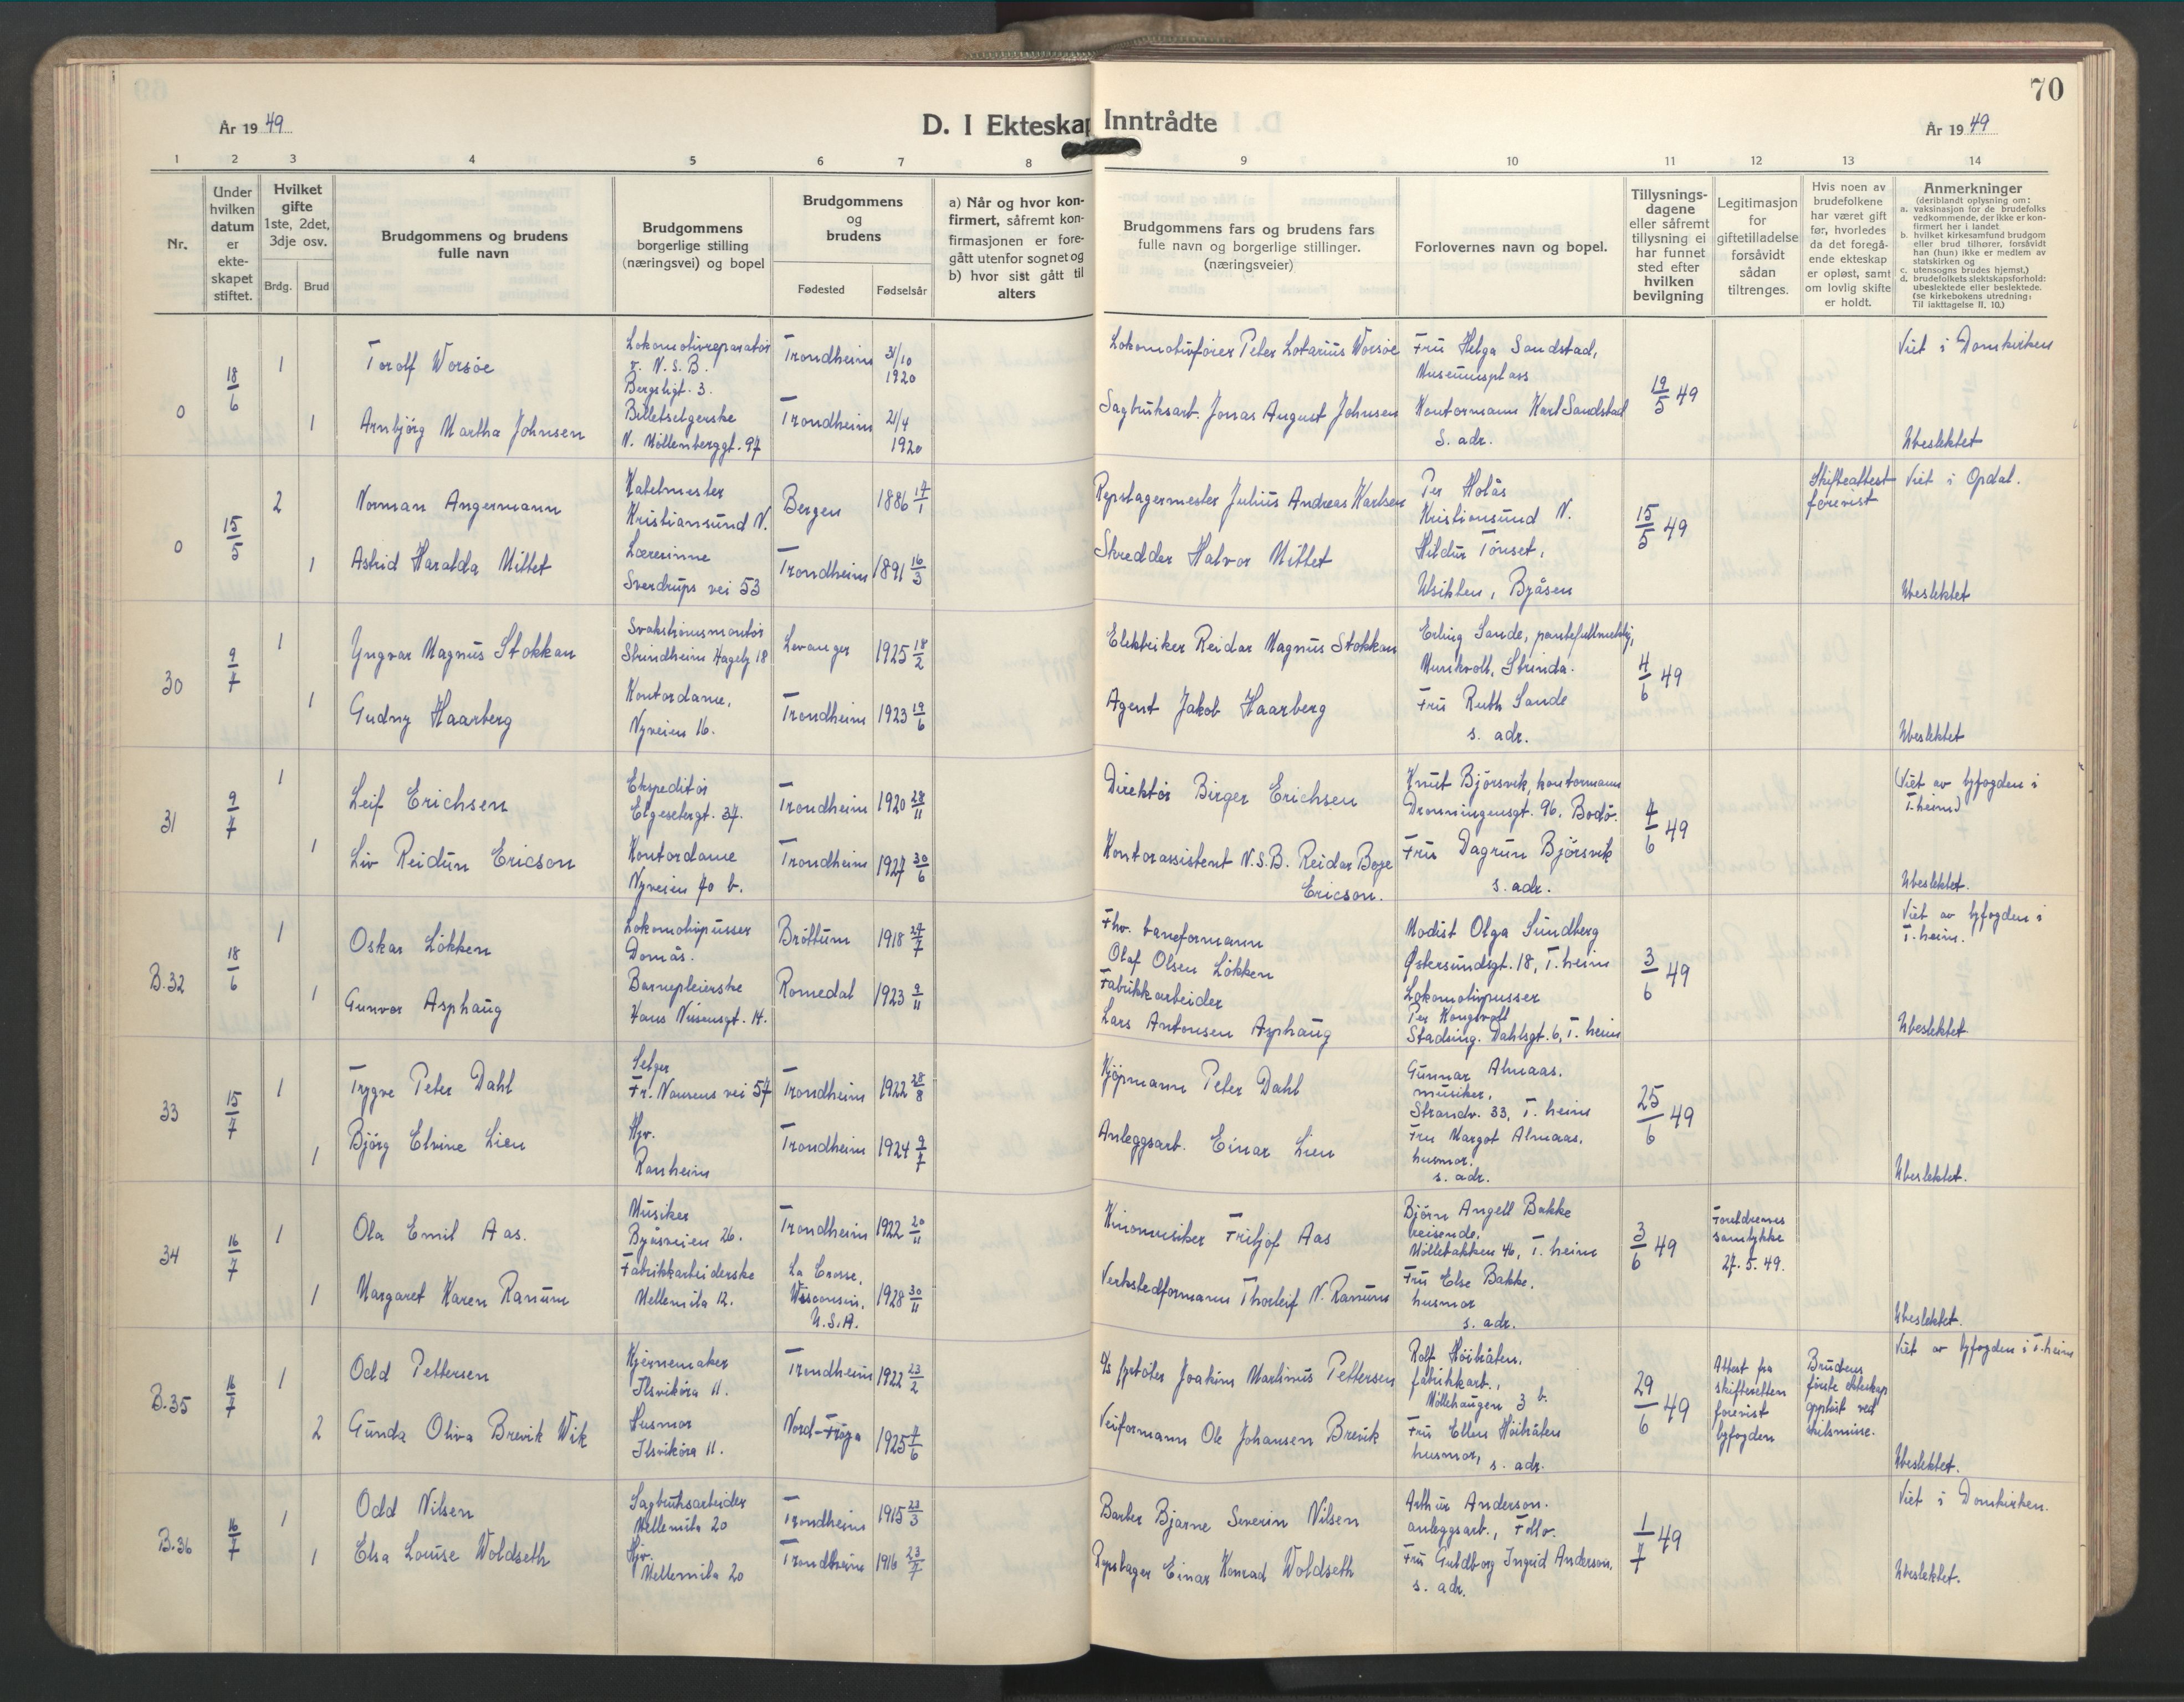 70
År 1949
D. I Ekteskap Inntrådte
År 1949
1 2 3 4 5 6 7 8 9 10 11 12 13 14
Nr.
Under hvilken datum er ekteskapet stiftet.
Hvilket gifte 1ste, 2det, 3dje osv.
Brdg. Brud
Brudgommens og brudens fulle navn
Brudgommens borgerlige stilling (næringsvei) og bopel
Brudgommens og brudens
Fødested Fødselsår
a) Når og hvor konfirmert, såfremt konfirmasjonen er foregått utenfor sognet og
b) hvor sist gått til alters
Brudgommens fars og brudens fars fulle navn og borgerlige stillinger. (næringsveier)
Forlovernes navn og bopel.
Tillysningsdagene eller såfremt tillysning ei har funnet sted efter hvilken bevilgning
Legitimasjon for giftetilladelse forsåvidt sådan tiltrenges.
Hvis noen av brudefolkene har været gift før, hvorledes da det foregående ekteskap er opløst, samt om lovlig skifte er holdt.
Anmerkninger
(deriblant oplysning om:
a. vaksinasjon for de brudefolks vedkommende, der ikke er konfirmert her i landet
b. hvilket kirkesamfund brudgom eller brud tilhører, forsåvidt han (hun) ikke er medlem av statskirken og
c. utensogns brudes hjemst.)
d. brudefolkets slektskapsforhold: ubeslektede eller beslektede.
(se kirkebokens utredning: Til iakttagelse II. 10.)
0
18/6
1
Torolf Worsöe
Lokomotivreparatör
v. N.S.B.
Bergsligt. 3.
Trondheim
31/10 1920
Lokomotivförer Peter Lotarius Worsöe
Fru Helga Sandstad,
Museumsplass
19/5 49
Viet i Domkirken
1
Arnbjörg Martha Johnsen
Billetselgerske
N. Möllenberggt. 97
Trondheim
21/4 1920
Sagbruksarb. Jonas August Johnsen
Kontormann Karl Sandstad
s. adr.
Ubeslektet
0
15/5
2
Norman Angermann
Kabelmester
Kristiansund N.
Bergen
1886 17/1
Repslagermester Julius Andreas Karlsen
Per Holås
Kristiansund N.
15/5 49
Skifteattest forevist
Viet i Opdal.
1
Astrid Haralda Mittet
Lærerinne
Sverdrups vei 53
Trondheim
1891 16/3
Skredder Halvor Mittet
Hildur Tönset,
Utsikten, Byåsen
Ubeslektet
30
9/7
1
Yngvar Magnus Stokkan
Svakströmsmontör
Strindheim Hageby 18
Levanger
1925 18/2
Elektriker Reidar Magnus Stokkan
Erling Sande,
Munkvoll, Strinda.
4/6 49
1
Gudny Haarberg
Kontordame,
Nyveien 16.
Trondheim
1923 19/6
Agent Jakob Haarberg
Fru Ruth Sande
s. adr.
Ubeslektet
31
9/7
1
Leif Erichsen
Ekspeditör
Elgesetergt. 37.
Trondheim
1920 28/11
Direktör Birger Erichsen
Knut Björsvik, kontormann
Dronningensgt. 96, Bodö.
4/6 49
(Viet av byfogden i T.heim)
1
Liv Reidun Ericson
Kontordame
Nyveien 70 b.
Trondheim
1927 30/6
Kontorassistent N.S.B. Reidar Boye Ericson.
Fru Dagrun Björsvik
s. adr.
Ubeslektet.
B.32
18/6
1
Oskar Lökken
Lokomotivpusser
Domås.
Bröttum
1918 27/7
Fhv. baneformann
Olaf Olsen Lökken
Modist Olga Sundberg
Østersundsgt. 18, T.heim
3/6 49
Viet av byfogden i T.heim.
1
Gunvor Asphaug
Barnepleierske
Hans Nissensgt. 14.
Romedal
1923 9/11
Fabrikkarbeider
Lars Antonsen Asphaug
Lokomotivpusser
Per Kongsvoll
Stadsing. Dahlsgt. 6, T.heim
Ubeslektet
33
15/7
1
Trygve Peter Dahl
Selger
Fr. Nansens vei 57
Trondheim
1922 28/8
Kjöpmann Peter Dahl
Gunnar Almaas,
musiker,
Strandv. 33, T.heim
25/6 49
1
Björg Elvine Lien
Hjv.
Ranheim
Trondheim
1924 9/7
Anleggsarb. Einar Lien
Fru Margot Almaas,
husmor,
s. adr.
Ubeslektet.
34
16/7
1
Ola Emil Aas.
Musiker
Byåsveien 26.
Trondheim
1922 20/11
Kinomusiker Fritjof Aas
Björn Angell Bakke
reisende,
Möllebakken 46, T.heim
3/6 49
Foreldrenes samtykke 27.5.49.
1
Margaret Karen Ranum
Fabrikkarbeiderske
Mellemila 12.
La Crosse,
Wisconsin,
U.S.A.
1928 30/11
Verkstedformann Thorleif N. Ranum
Fru Else Bakke,
husmor
s. adr.
Ubeslektet.
B.35
16/7
1
Odd Pettersen
Kjernemaker
Ilsviköra 11.
Trondheim
1922 23/2
fyrböter Joakim Martinus Pettersen
Rolf Höibråten,
fabrikkarb.,
Möllehaugen 3 b.
29/6 49
Attest fra skifteretten forevist byfogden
Brudens förste ekteskap opplöst ved skilsmisse.
Viet av byfogden i T.heim
2
Gunda Oliva Brevik Wik
Husmor
Ilsviköra 11.
Nord-Fröya
1925 7/6
Veiformann Ole Johansen Brevik
Fru Ellen Höibråten
husmor, s. adr.
Ubeslektet.
B.36
16/7
1
Odd Nilsen
Sagbruksarbeider
Mellemila 20
Trondheim
1915 23/3
Barber Bjarne Severin Nilsen
Arthur Anderson.
anleggsarb., Follo.
1/7 49
Viet i Domkirken.
1
Elsa Louise Woldseth
Hjv.
Mellemila 20
Trondheim
1916 23/7
Repslager Einar Konrad Woldseth
Fru Guldborg Ingrid Anderson,
s. adr.
Ubeslektet.